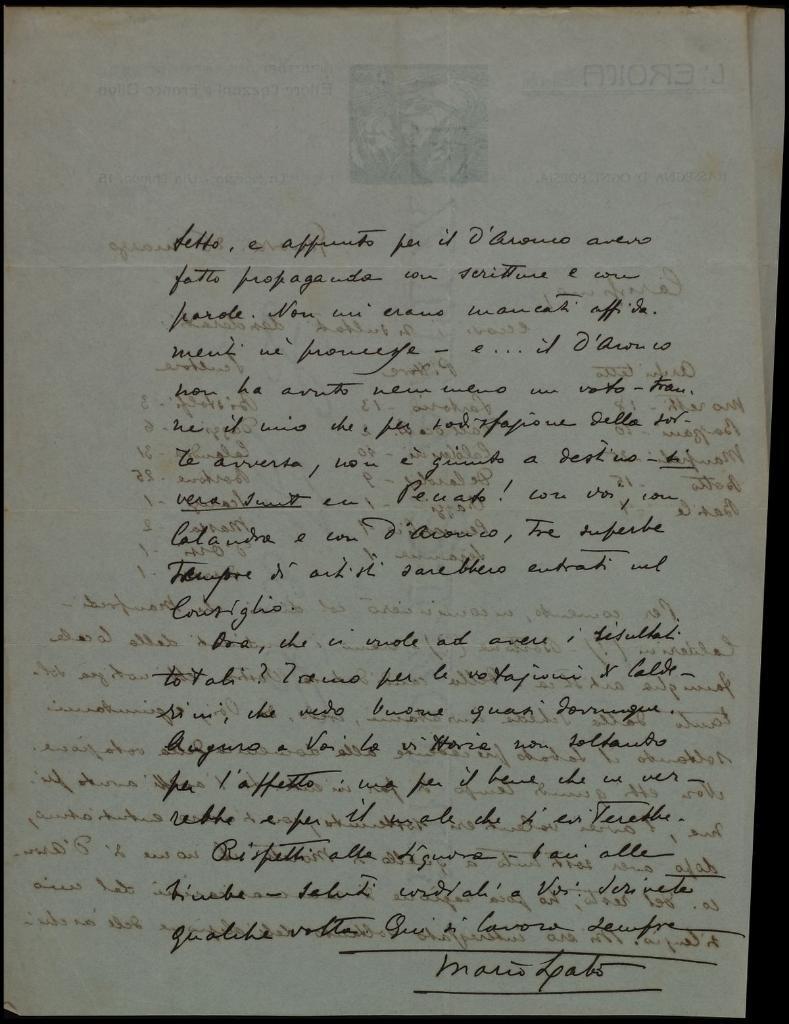 tetto, e appunto per il D'Aronco avevo
fatto propaganda con scritture e con
parole. Non mi erano mancati affida-
menti nè promesse – e... il D'Aronco
non ha avuto nemmeno un voto – tran-
ne il mio che, per sodisfazione della sor-
te avversa, non è giunto a destino – si
vera sunt Peccato! con voi, con
Calandra e con D'Aronco, tre superbe
tempre di artisti sarebbero entrati nel
Consiglio.
Ora, che ci vuole ad avere i risultati
totali? Tremo per le votazioni di Calde-
rini, che vedo buone quasi dovunque.
Auguro a Voi la vittoria non soltanto
per l'affetto, ma per il bene che ne ver-
rebbe e per il male che si eviterebbe.
Rispetti alla Signora – baci alle
bimbe – saluti cordiali a Voi. Scrivete
qualche volta. Qui si lavora sempre
Mario Labò